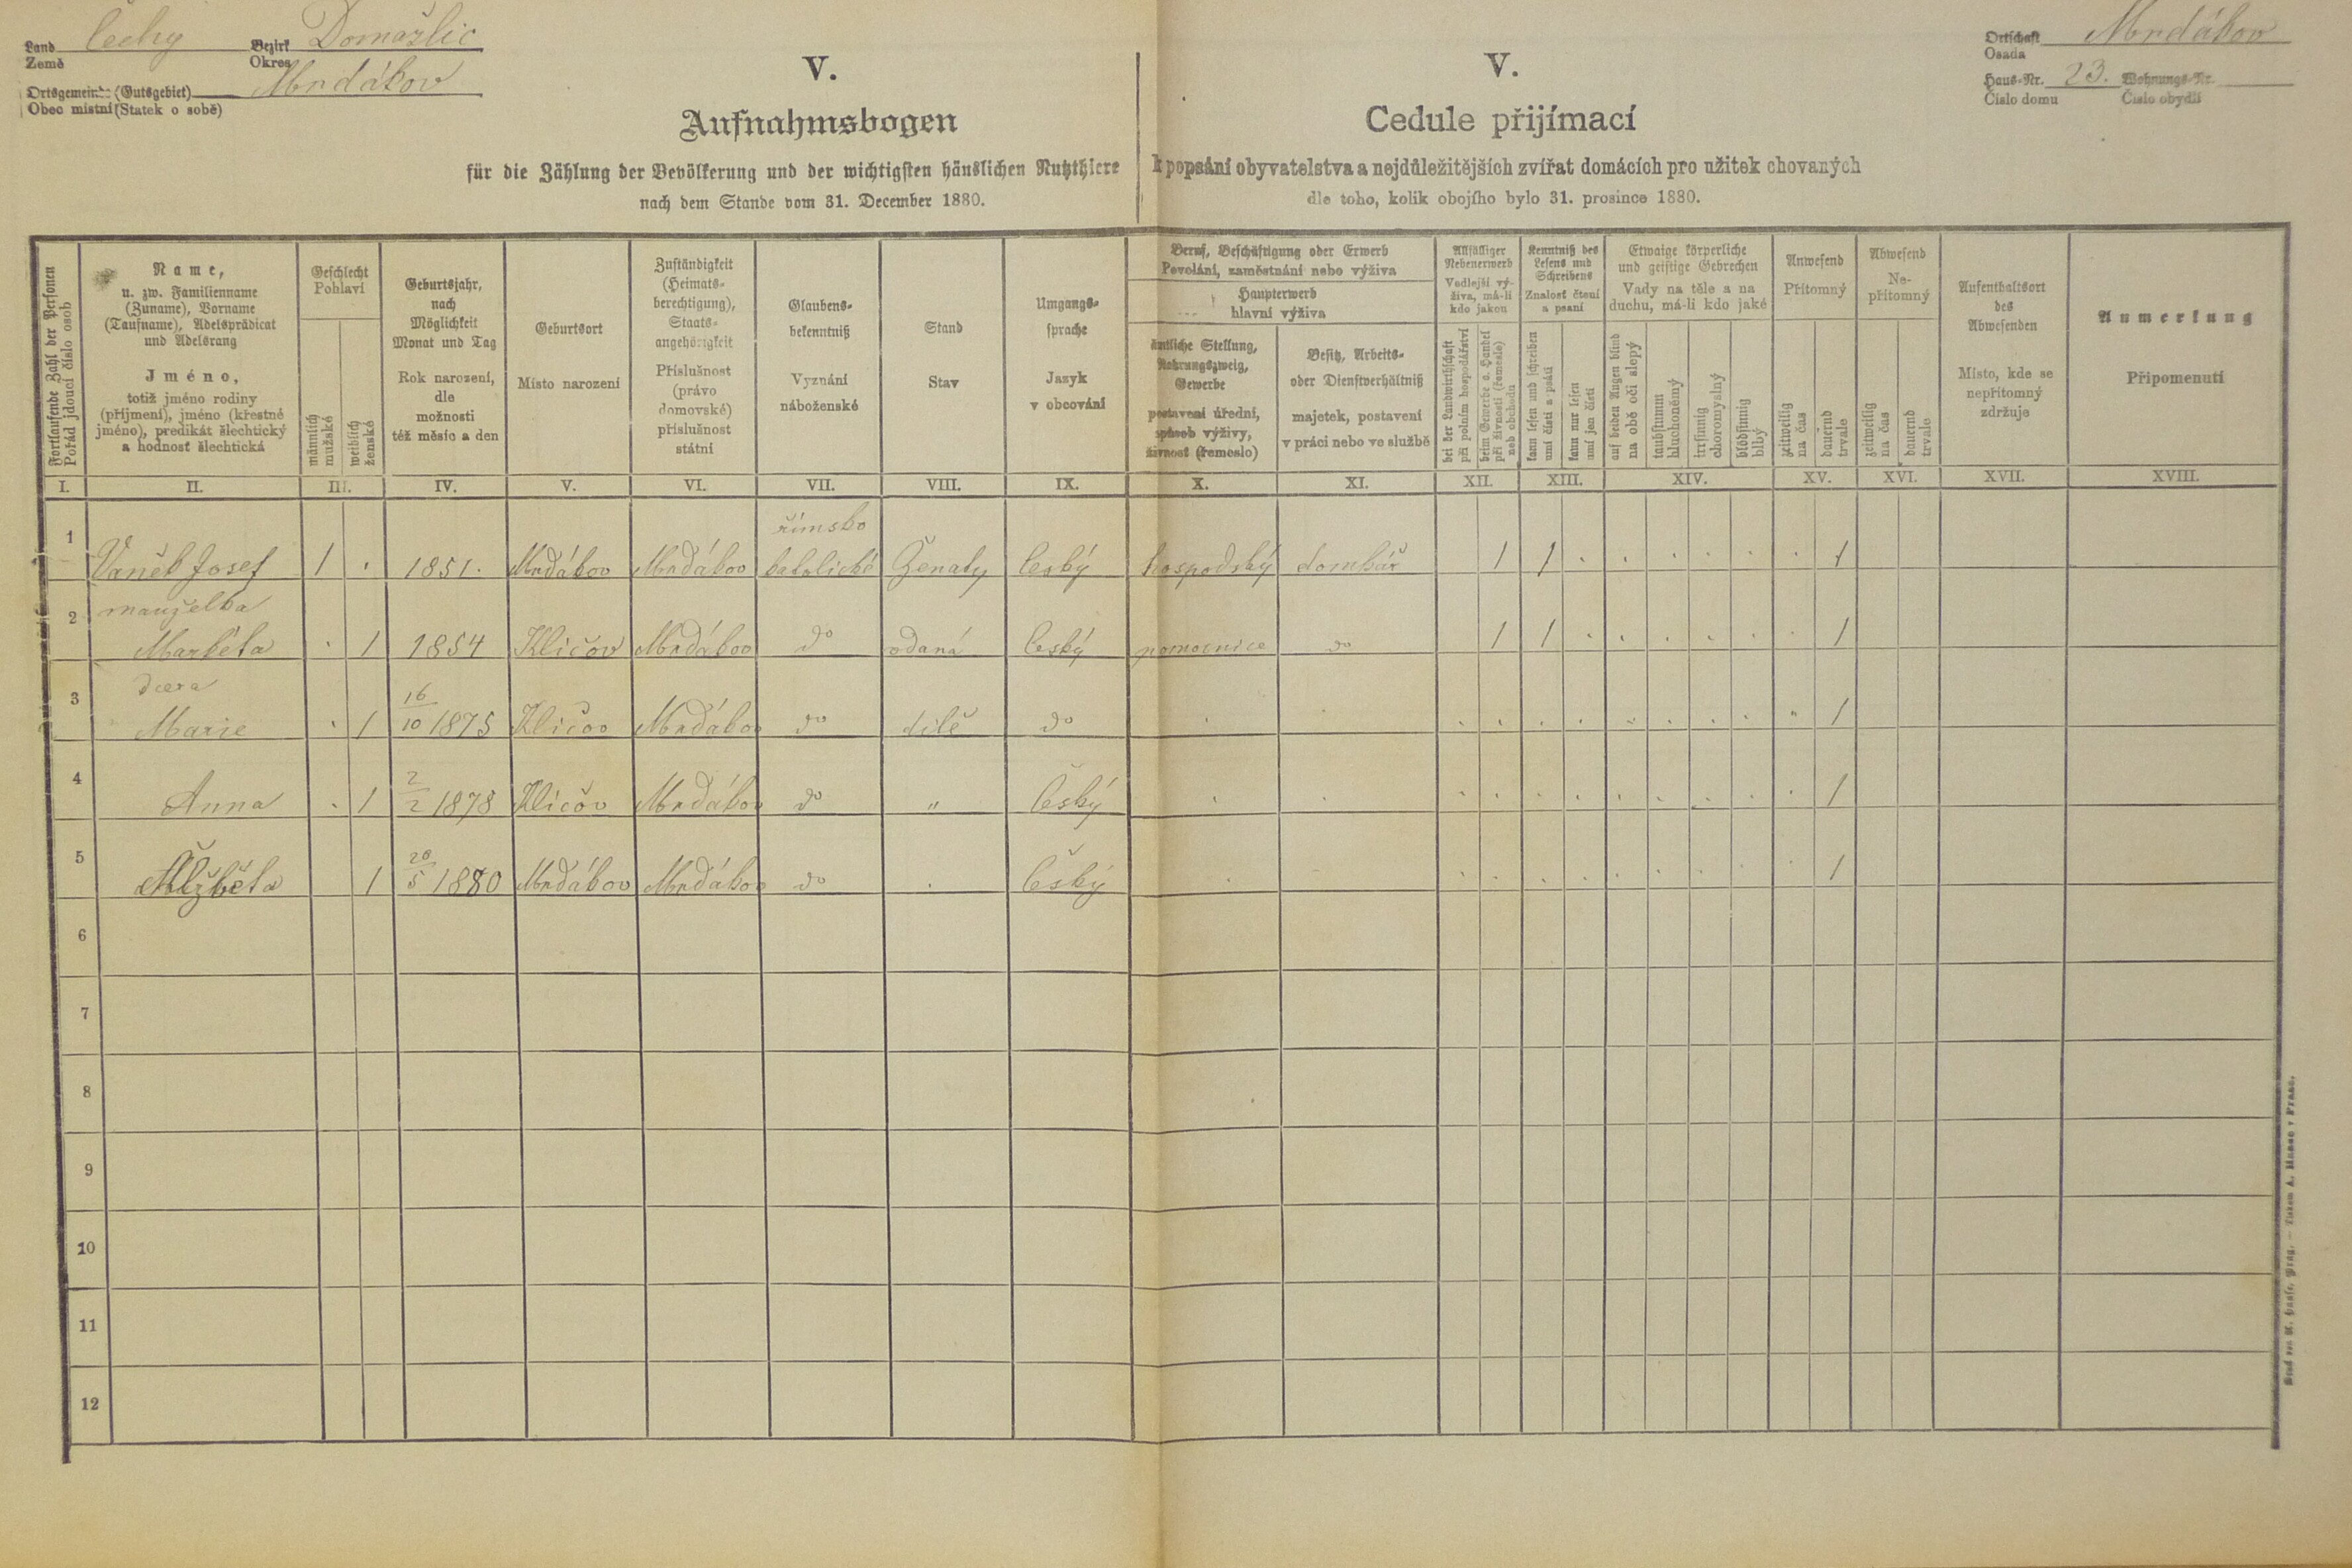 Land Čechy Bezirk Domažlic
Země Okres
Ortsgemeinde (Gutsgebiet) Mrdákov
Obec místní (Statek o sobě)
V.
Aufnahmsbogen
für die Zählung der Bevölkerung und der wichtigsten häuslichen Nutzthiere
nach dem Stande vom 31. December 1880.
V.
Cedule přijímací
k popsání obyvatelstva a nejdůležitějších zvířat domácích pro užitek chovaných
dle toho, kolik obojího bylo 31. prosince 1880.
Ortschaft Mrdákov
Osada
Haus-Nr. 23. Wohnungs-Nr.
Číslo domu Číslo obydlí
Fortlaufende Zahl der Personen
Pořád jdoucí číslo osob
Name,
u. zw. Familienname
(Zuname), Vorname
(Taufname), Adelsprädicat
und Adelsrang
Jméno,
totiž jméno rodiny
(příjmení), jméno (křestné
jméno), predikát šlechtický
a hodnost šlechtická
Geschlecht
Pohlaví
männlich
mužské
weiblich
ženské
Geburtsjahr,
nach
Möglichkeit
Monat und Tag
Rok narození,
dle
možnosti
též měsíc a den
Geburtsort
Místo narození
Zuständigkeit
(Heimats-
berechtigung),
Staats-
angehörigkeit
Příslušnost
(právo
domovské)
příslušnost
státní
Glaubens-
bekenntniß
Vyznání
náboženské
Stand
Stav
Umgangs-
sprache
Jazyk
v obcování
Beruf, Beschäftigung oder Erwerb
Povolání, zaměstnání nebo výživa
Haupterwerb
hlavní výživa
ämtliche Stellung,
Nahrungszweig,
Gewerbe
postavení úřední,
spůsob výživy,
živnost (řemeslo)
Besitz, Arbeits-
oder Dienstverhältniß
majetek, postavení
v práci nebo ve službě
Allfälliger
Nebenerwerb
Vedlejší vý-
živa, má-li
kdo jakou
bei der Landwirthschaft
při polním hospodářství
beim Gewerbe o. Handel
při živnosti (řemesle)
neb obchodu
Kenntniß des
Lesens und
Schreibens
Znalost čtení
a psaní
kann lesen und schreiben
umí čísti a psáti
kann nur lesen
umí jen čísti
Etwaige körperliche
und geistige Gebrechen
Vady na těle a na
duchu, má-li kdo jaké
auf beiden Augen blind
na obě oči slepý
taubstumm
hluchoněmý
irrsinnig
choromyslný
blödsinnig
blbý
Anwesend
Přítomný
zeitweilig
na čas
dauernd
trvale
Abwesend
Ne-
přítomný
zeitweilig
na čas
dauernd
trvale
Aufenthaltsort
des
Abwesenden
Místo, kde se
nepřítomný
zdržuje
Anmerkung
Připomenutí
I. II. III. IV. V. VI. VII. VIII. IX. X. XI. XII. XIII. XIV. XV. XVI. XVII. XVIII.
římsko
1 Vaněk Josef 1 . 1851. Mrdákov Mrdákov katolické Ženatý český hospodský domkář 1 1 . . . . . . 1
manželka
2 Markéta . 1 1854 Klíčov Mrdákov do vdaná český pomocnice do 1 1 . . . . . . 1
dcera
3 Marie . 1 16/10 1875 Klíčov Mrdákov do dítě do . . . . . . . . . . . 1
4 Anna . 1 2/2 1878 Klíčov Mrdákov do " Český . . . . . . . . . . . 1
5 Alžběta 1 28/5 1880 Mrdákov Mrdákov do . Český . . . . . . . . . . 1
6
7
8
9
10
11
12
Druck von A. Haase, Prag. — Tiskem A. Haase v Praze.